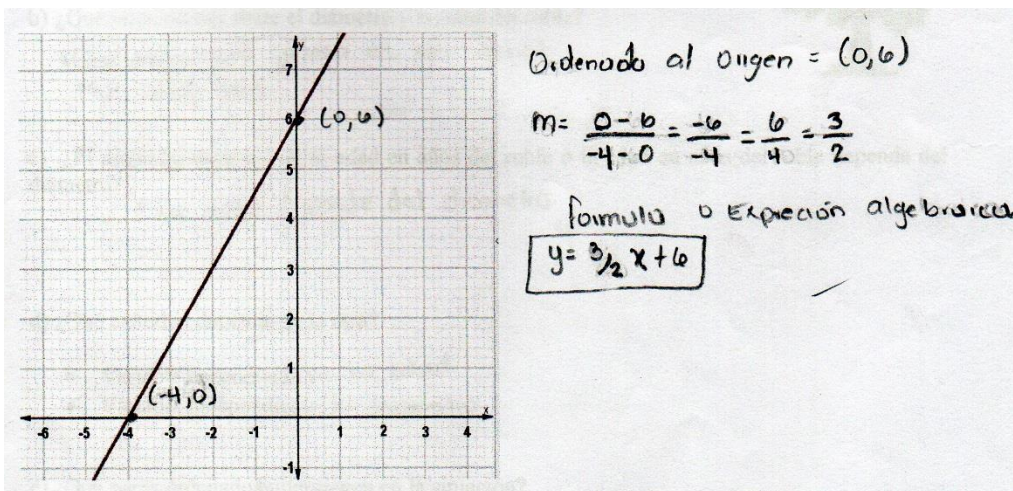 y
7
6
(0,6)
5
4
3
2
1
(-4,0)
x
-6 -5 -4 -3 -2 -1 1 2 3 4
-1
Ordenada al Origen = (0,6)
m= 0-6/-4-0 = -6/-4 = 6/4 = 3/2
formula o Expreción algebraica
y= 3/2 x+6